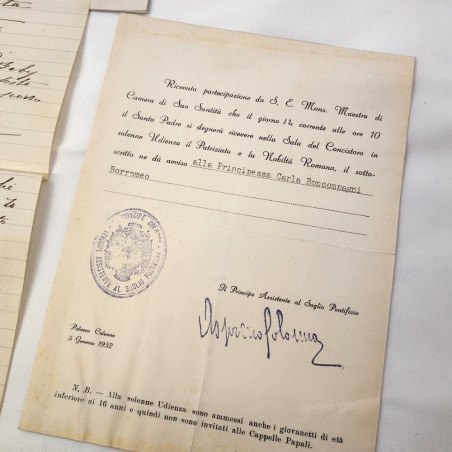 Ricevuta partecipazione da S. E. Mons. Maestro di
Camera di Sua Santità che il giorno 14 corrente alle ore 10
il Santo Padre si degnerà ricevere nella Sala del Concistoro in
solenne Udienza il Patriziato e la Nobiltà Romana, il sotto-
scritto ne dà avviso alla Principessa Carla Boncompagni
Borromeo
ASSISTENTE AL SOGLIO
Il Principe Assistente al Soglio Pontificio
Palazzo Colonna
5 Gennaio 1952
N. B. — Alla solenne Udienza sono ammessi anche i giovanetti di età
inferiore ai 16 anni e quindi non sono invitati alle Cappelle Papali.